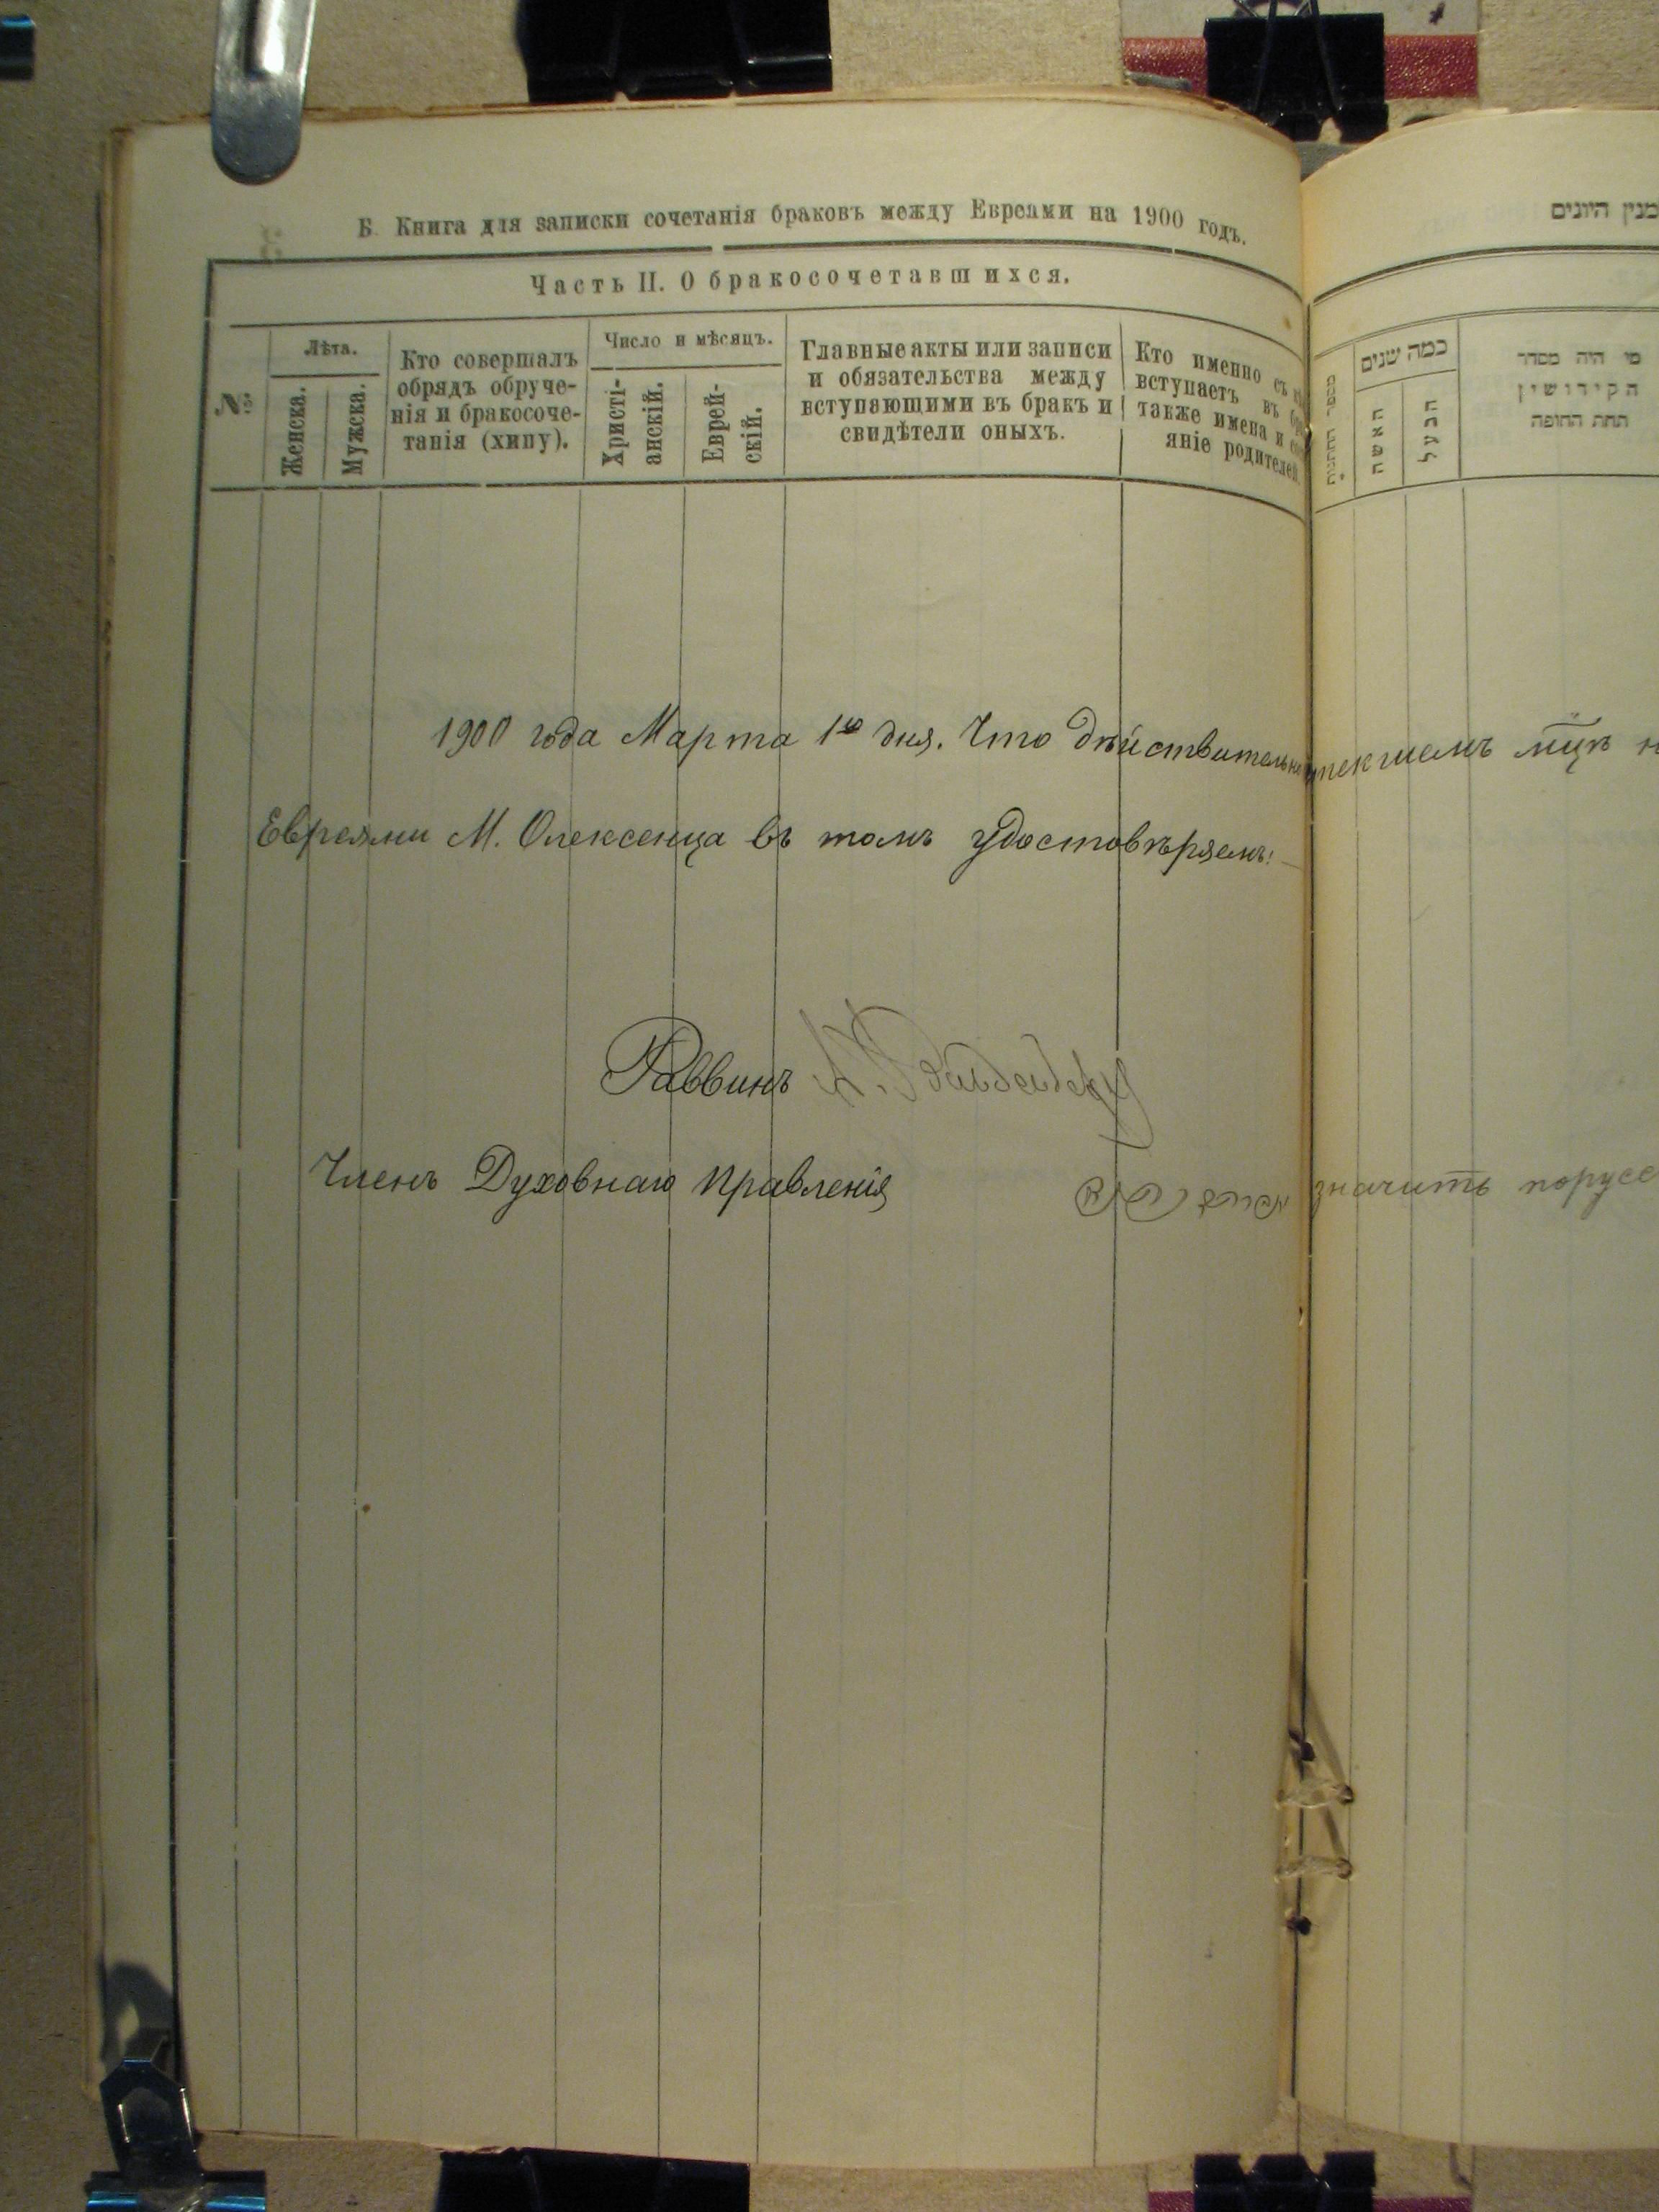 Б. Книга для записки сочетанія браковъ между Евреами на 1900 годъ.
Часть II. О бракосочетавшихся.
№
Лѣта.
Женска.
Мужска.
Кто совершалъ
обрядъ обруче-
нія и бракосоче-
танія (хипу).
Число и мѣсяцъ.
Христі-
анскій.
Еврей-
скій.
Главные акты или записи
и обязательства между
вступающими въ бракъ и
свидѣтели оныхъ.
Кто именно съ
вступаетъ въ
также имена и
яніе родителей
1900 года Марта 1го дня. Что дѣйствительно
Евреями М. Олексенца въ томъ удостовѣряемъ:
Раввинъ
Членъ Духовнаго правленія
מנין היונים
כמה שנים
האשה
הבעל
מי היה מסדר
הקידושין
תחת החופה
текшемъ мцѣ
значитъ